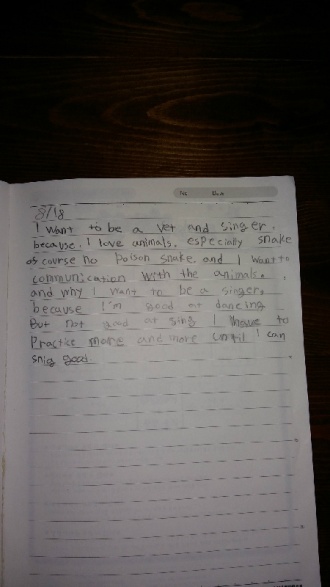 No. Date
8/18
I want to be a vet and singer.
because. I love animals. especialy snake
of course no Poison snake. and I want to
communication with the animals.
and why I want to be a singer.
because I'm good at dancing
But not good at sing I have to
Practice more and more until I can
snig good.